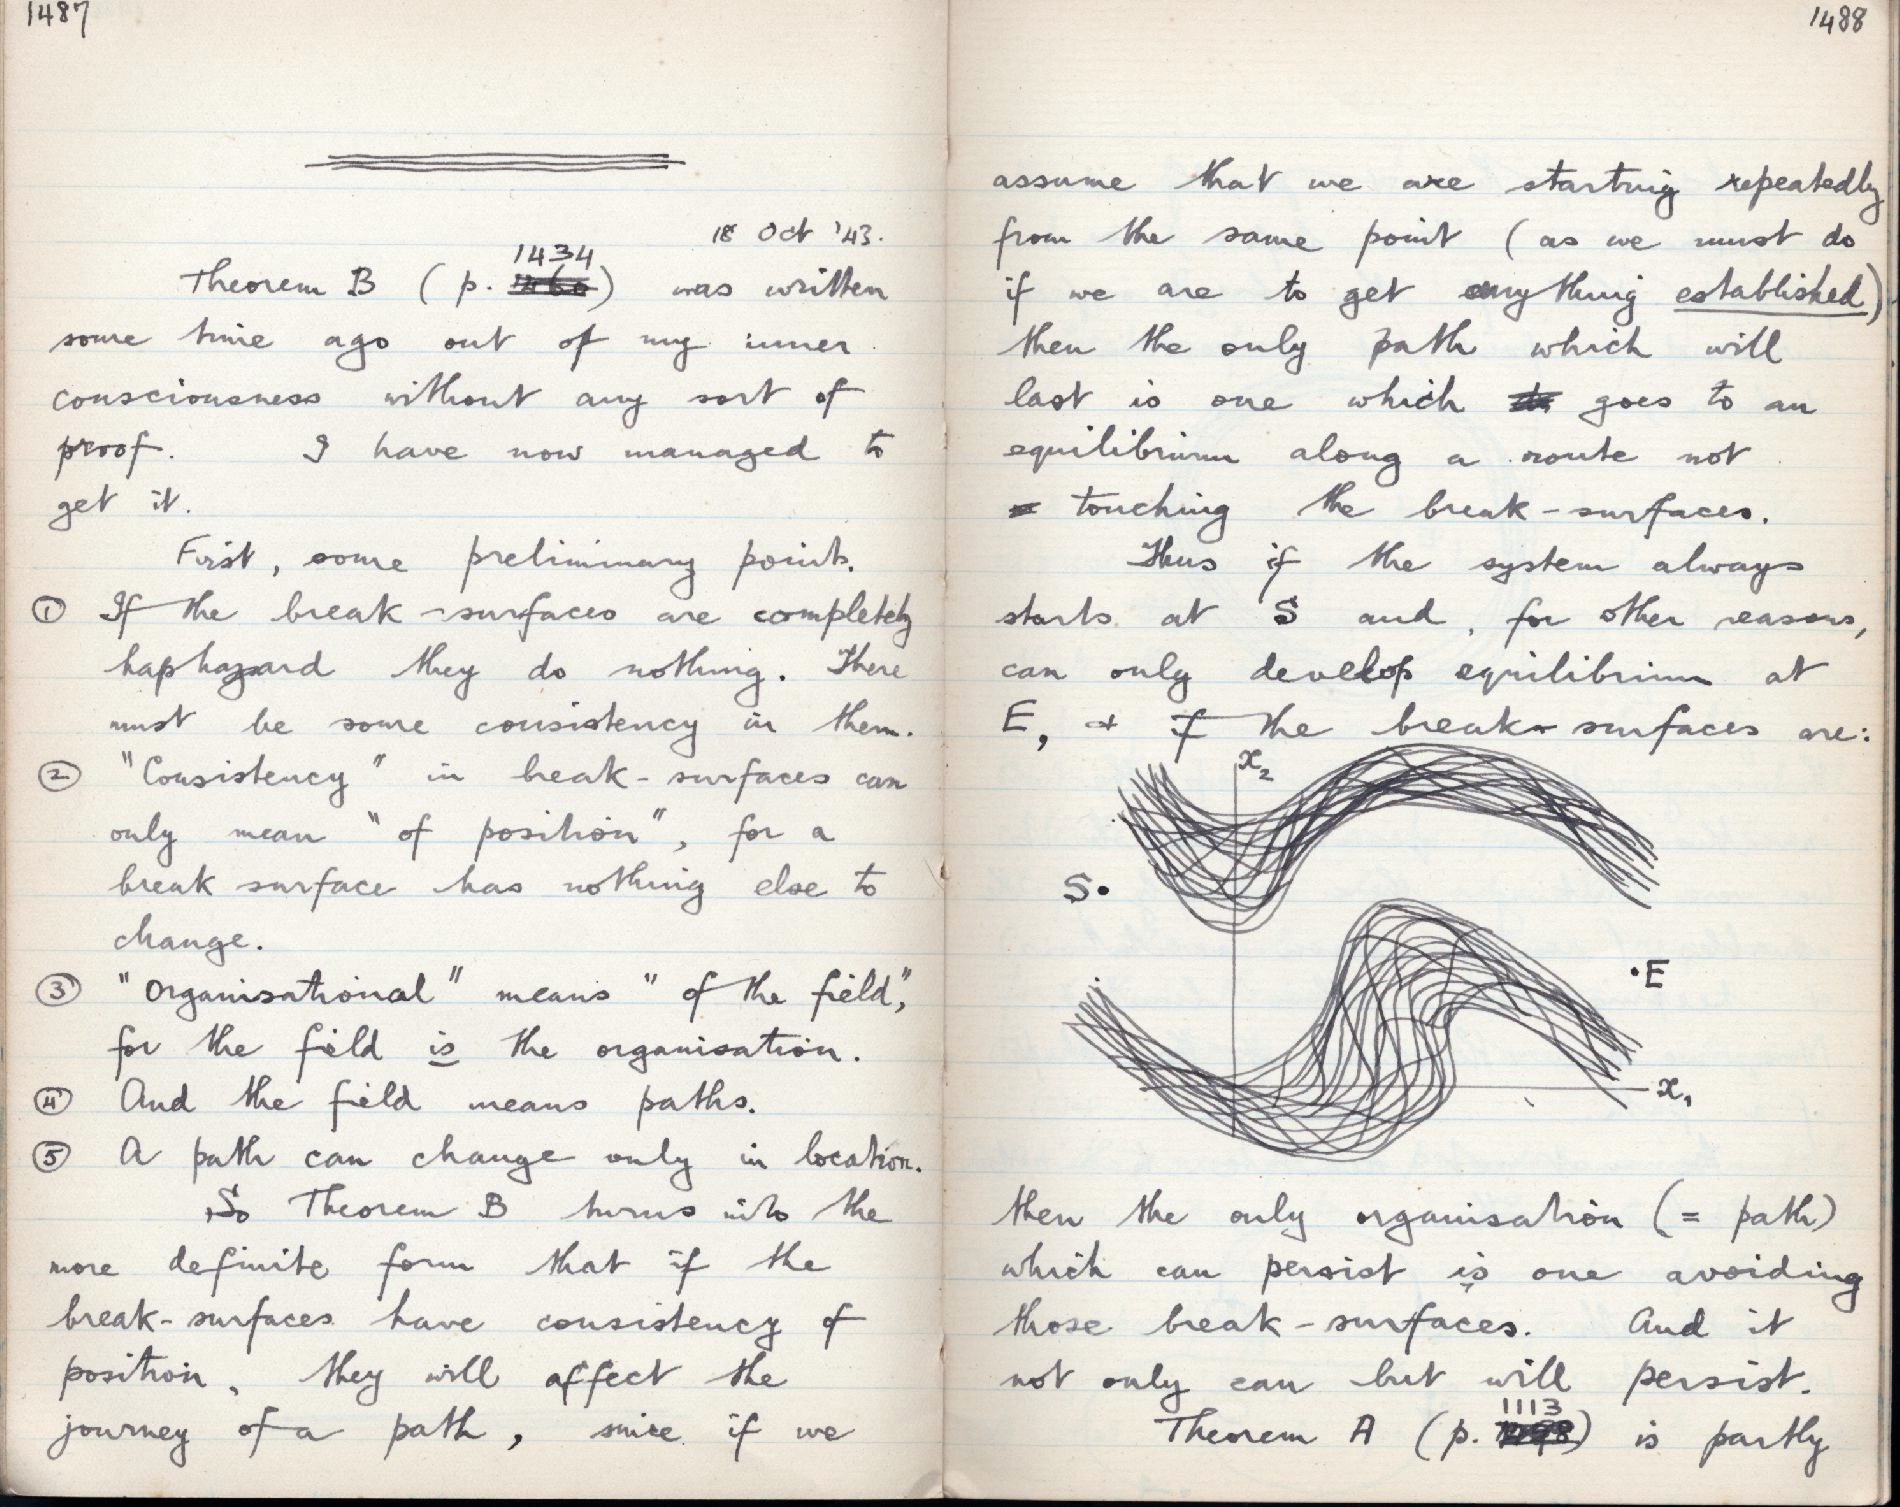 1487
18 Oct '43.
1434
Theorem B (p. ) was written
some time ago out of my inner
consciousness without any sort of
proof. I have now managed to
get it.
First, some preliminary points.
① If the break-surfaces are completely
haphazard they do nothing. There
must be some consistency in them.
② "Consistency" in break-surfaces can
only mean "of position", for a
break surface has nothing else to
change.
③ "Organisational" means "of the field",
for the field is the organisation.
④ And the field means paths.
⑤ A path can change only in location.
So Theorem B turns into the
more definite form that if the
break-surfaces have consistency of
position, they will affect the
journey of a path, since if we
1488
assume that we are starting repeatedly
from the same point (as we must do
if we are to get anything established)
then the only path which will
last is one which goes to an
equilibrium along a route not
touching the break-surfaces.
Thus if the system always
starts at S and, for other reasons,
can only develop equilibrium at
E, + if the break-surfaces are:
x₂
S
E
x₁
then the only organisation (= path)
which can persist is one avoiding
those break-surfaces. And it
not only can but will persist.
1113
Theorem A (p. ) is partly